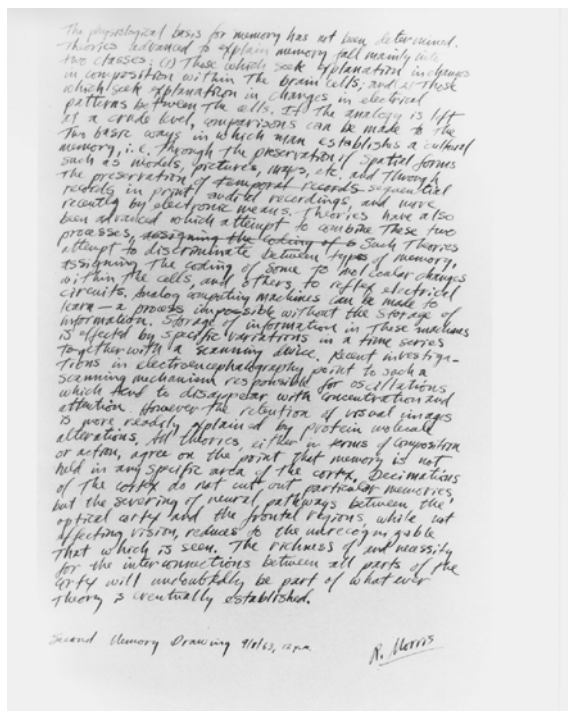 The physiological basis for memory has not been determined.
Theories advanced to explain memory fall mainly into
two classes: (1) Those which seek explanation in changes
in composition within the brain cells; and 2) Those
which seek explanation in changes in electrical
patterns between the cells. If the analogy is left
at a crude level, comparisons can be made to the
two basic ways in which man establishes a cultural
memory, i.e. through the preservation of spatial forms
such as models, pictures, maps, etc. and through
the preservation of temporal records sequential
records in print, audial recordings, and more
recently by electronic means. Theories have also
been advanced which attempt to combine these two
processes, assigning the coding of s Such Theories
attempt to discriminate between types of memory,
assigning the coding of some to molecular changes
within the cells, and others, to reflex electrical
circuits. Analog computing machines can be made to
learn — a process impossible without the storage of
information. Storage of information in these machines
is effected by specific variations in a time series
together with a scanning device. Recent investiga-
tions in electroencephalography point to such a
scanning mechanism responsible for oscillations
which tend to disappear with concentration and
attention. However the retention of visual images
is more readily explained by protein molecule
alterations. All theories, either in terms of composition
or action, agree on the point that memory is not
held in any specific area of the cortex. Decimations
of the cortex do not cut out particular memories,
but the severing of neural pathways between the
optical cortex and the frontal regions, while not
affecting vision, reduces to the unrecognizable
that which is seen. The richness of and necessity
for the interconnections between all parts of the
cortex will undoubtedly be part of what ever
theory is eventually established.
Second Memory Drawing 9/8/63, 12 p.m.
R. Morris